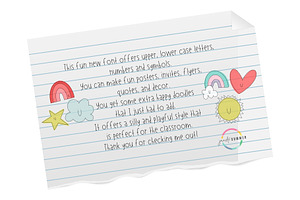 This fun new font offers upper, lower case letters,
numbers and symbols.
You can make fun posters, invites, flyers,
quotes, and decor.
You get some extra happy doodles
that I just had to add.
It offers a silly and playful style that
is perfect for the classroom.
Thank you for checking me out!